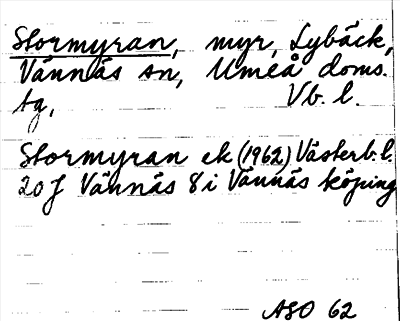 Stormyran, myr, Lybäck,
Vännäs sn, Umeå doms.
tg, Vb. l.
Stormyran ek (1962) Västerb. l.
20 J Vännäs 8 i Vännäs köping
ASO 62